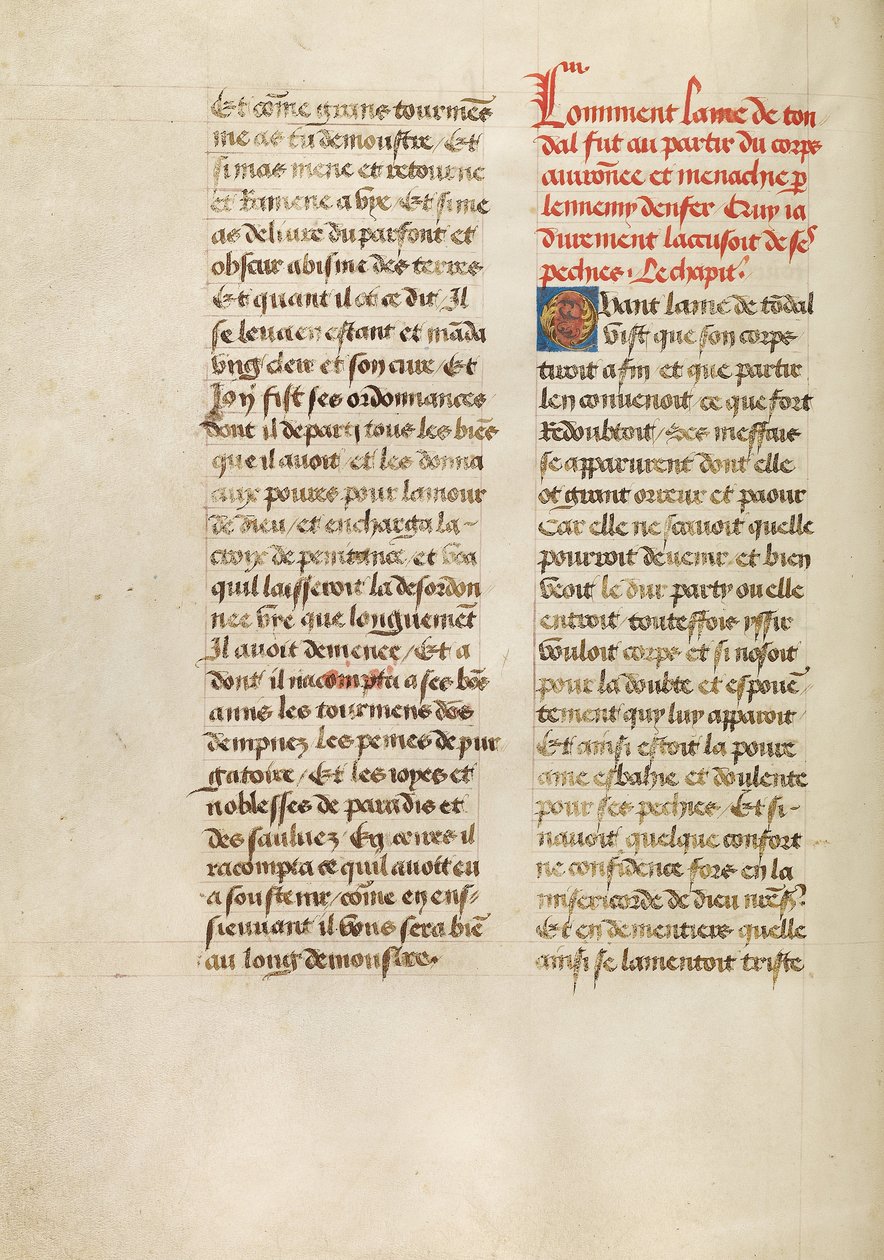 Et cōme grans tourmēs
me as tu demoustre / Et
si mas mene et retourne
et Ramene a vye / Et si me
as deliure du parfont et
obscur abisme des terres
Et quant il ot ce dit / Il
se leua en estant et māda
vng clerc et son cure / Et
Loy fist ses ordonnances
dont il departj tous les biēs
que il auoit / et les donna
aux poures pour lamour
de dieu / et encharga la -
croix de penitance / et voa
quil laisseroit la desordon -
nee vye que longuemēt
Il auoit demenee / Et a
dont il racompta a ses bōs
amis les tourmens des
dempnez les peines de pur
gatoire / Et les ioyes et
noblesses de paradis et
des sauluez / En oeures il
racompta ce quil auoit eu
a soustenir / cōme en ens -
sieuuant il vous sera biē
au long demoustre .
iii.
Comment lame de ton /
dal fut au partir du corps
auirōnee et menachie ꝑ
lennemy denfer / Quy ia
durement laccusoit de ses
pechies . Le chapit .
Quant lame de tōdal
vist que son corps
tiroit a fin / et que partir
len conuenoit / ce que fort
Redoubtoit / Ses meffais
se apparurent dont elle
ot grant orreur et paour
Car elle ne scauoit quelle
pourroit deuenir / et bien
veoit le dur party ou elle
entroit / touteffois yssir
vouloit corps et si nosoit
pour la doubte et espouē /
tement quy luy apparoit
Et ainsi estoit la poure
ame esbahie et doulente
pour ses pechies / Et si -
nauoit quelque confort
ne confidence fors en la
misericorde de dieu nr̄e sr̄ .
Et en dementiers quelle
ainsi se lamentoit triste